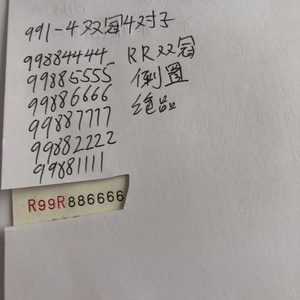 991-4双冠4对子
99884444 RR双冠
99885555 倒圈
99886666 绝品
99887777
99882222
99881111
R99R886666